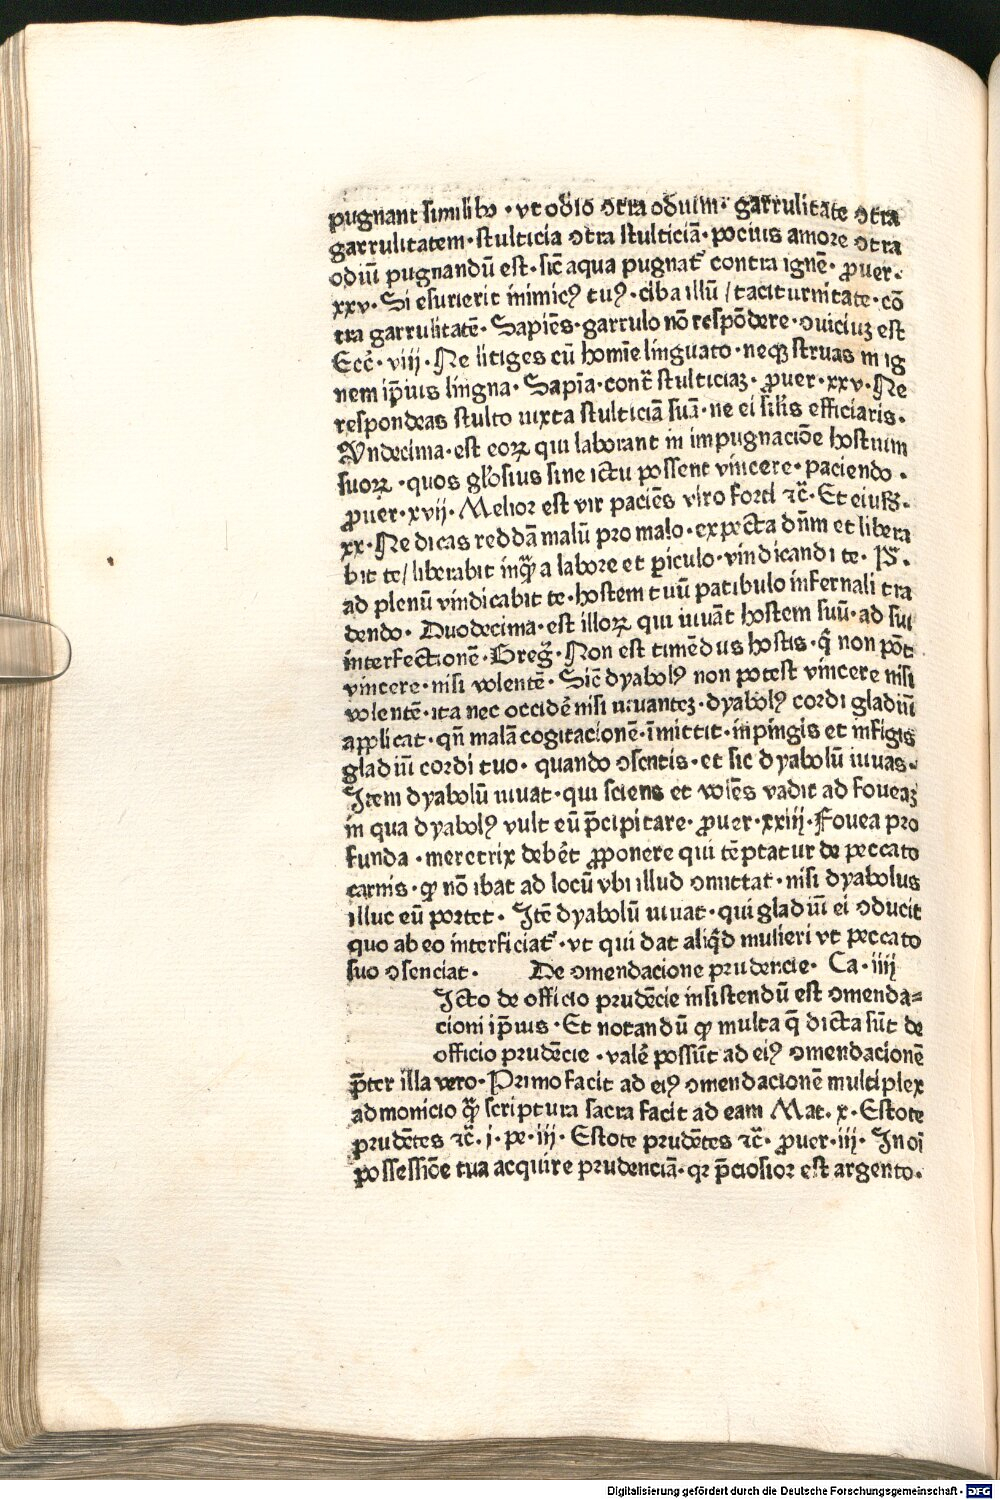 pugnant similibꝫ · vt odio ↄtra odium · garrulitate ↄtra
garrulitatem · stulticia ↄtra stulticiā · pocius amore ↄtra
odiū pugnandū est · sic̄ aqua pugnat᷑ contra ignē · ꝓuer ·
xxv · Si esurierit inimicꝰ tuꝰ · ciba illū / taciturnitate · cō
tra garrulitatē · Sapiēs · garrulo nō respōdere · ↄuiciuꝫ est
Ecc̄ · viij · Ne litiges cū homīe linguato · neqꝫ struas in ig
nem ip̄ius lingna · Sapīa · cont᷑ stulticiaꝫ · ꝓuer · xxv · Ne
respondeas stulto iuxta stulticiā suā · ne ei sil̄is efficiaris ·
Vndecima · est eoꝝ qui laborant in impugnaciōe hostium
suoꝝ · quos gl̄osius sine ictu possent vincere · paciendo ·
ꝓuer · xvij · Melior est vir paciēs viro forti ⁊c̄ · Et eiusꝫ ·
xx · Ne dicas reddā malū pro malo · expecta dn̄m et libera
bit te / liberabit inqͣ a labore et ꝑiculo · vindicandi te · S ·
ad plenū vindicabit te · hostem tuū patibulo infernali tra
dendo · Duodecima · est illoꝝ qui iuuāt hostem suū · ad sui
interfectionē · Greg̃ · Non est timēdus hostis · q̄ non pōt
vincere · nisi volentē · Sic̄ dyabolꝰ non potest vincere nisi
volentē · ita nec occidē nisi iuuanteꝫ · dyabolꝰ cordi gladiū
applicat · qn̄ malā cogitacionē · īmittit · inpingis et infigis
gladiū cordi tuo · quando ↄsentis · et sic dyabolū iuuas ·
Item dyabolū iuuat · qui sciens et volēs vadit ad foueaꝫ
in qua dyabolꝰ vult eū p̄cipitare · ꝓuer · xxiij · Fouea pro
funda · meretrix debēt ꝓponere qui tēptatur de peccato
carnis · ꝙ nō ibat ad locū vbi illud ↄmittat · nisi dyabolus
illuc eū portet · Itē dyabolū iuuat · qui gladiū ei ↄducit
quo ab eo interficiat᷑ · vt qui dat aliq̄d mulieri vt peccato
suo ↄsenciat · De ↄmendacione prudencie · Ca · iiij
Icto de officio prudēcie insistendū est ↄmenda⸗
cioni ip̄ius · Et notandū ꝙ multa q̄ dicta sūt de
officio prudēcie · valē possūt ad eiꝰ ↄmendacionē
p̄ter illa vero · Primo facit ad eiꝰ ↄmendacionē multiplex
admonicio qͣ scriptura sacra facit ad eam Mat · x · Estote
prudētes ⁊c̄ · i · pe · iij · Estote prudētes ⁊c̄ · ꝓuer · iij · In oī
possessiōe tua acquire prudenciā · qꝛ p̄ciosior est argento ·
Digitalisierung gefördert durch die Deutsche Forschungsgemeinschaft - DFG